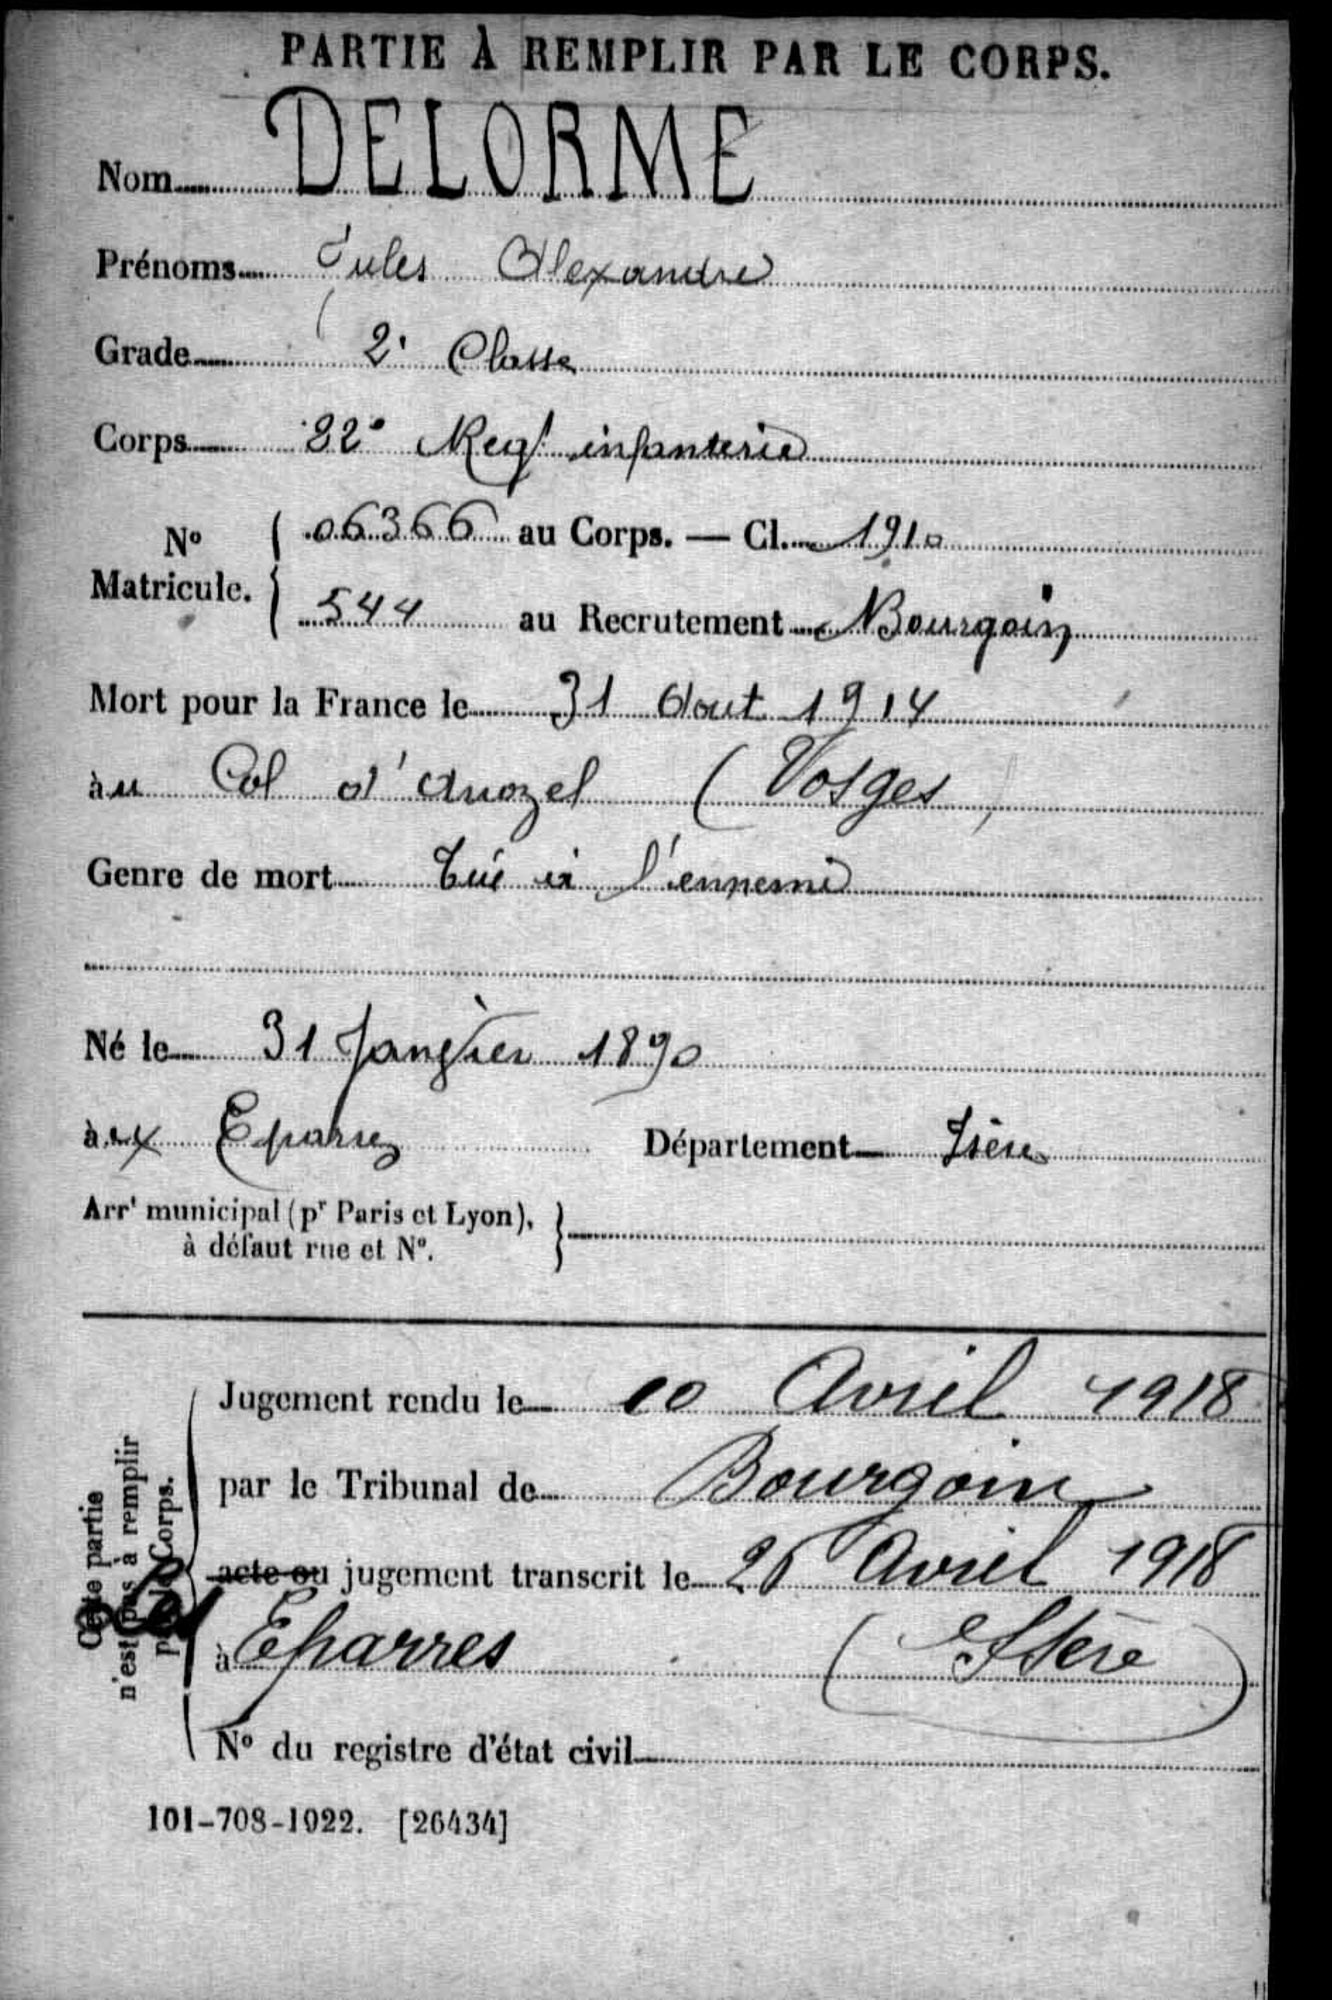 PARTIE À REMPLIR PAR LE CORPS.
Nom DELORME
Prénoms Jules Alexandre
Grade 2e Classe
Corps 22e Regt infanterie
No Matricule. { 06366 au Corps. — Cl. 1910
544 au Recrutement Bourgoin
Mort pour la France le 31 Aout 1914
àu Col d'Anozel (Vosges)
Genre de mort Tué à l'ennemi
Né le 31 Janvier 1890
àux Eparres Département Isère
Arrt municipal (pr Paris et Lyon),
à défaut rue et No.
Cette partie
n'est pas à remplir
par le Corps.
Jugement rendu le 10 Avril 1918
par le Tribunal de Bourgoin
acte ou jugement transcrit le 26 Avril 1918
à Les Eparres (Isère)
No du registre d'état civil
101-708-1922. [26434]